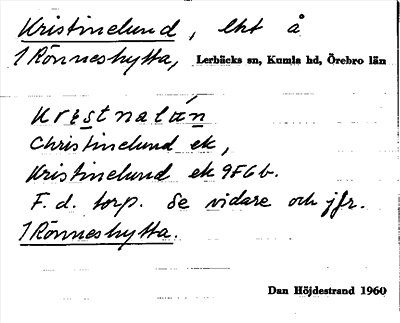 Kristinelund, lht å
1 Rönneshytta, Lerbäcks sn, Kumla hd, Örebro län
Krɩstnalún
Christinelund ek,
Kristinelund ek 9F6b.
F.d. torp. Se vidare och jfr.
1 Rönneshytta.
Dan Höjdestrand 1960